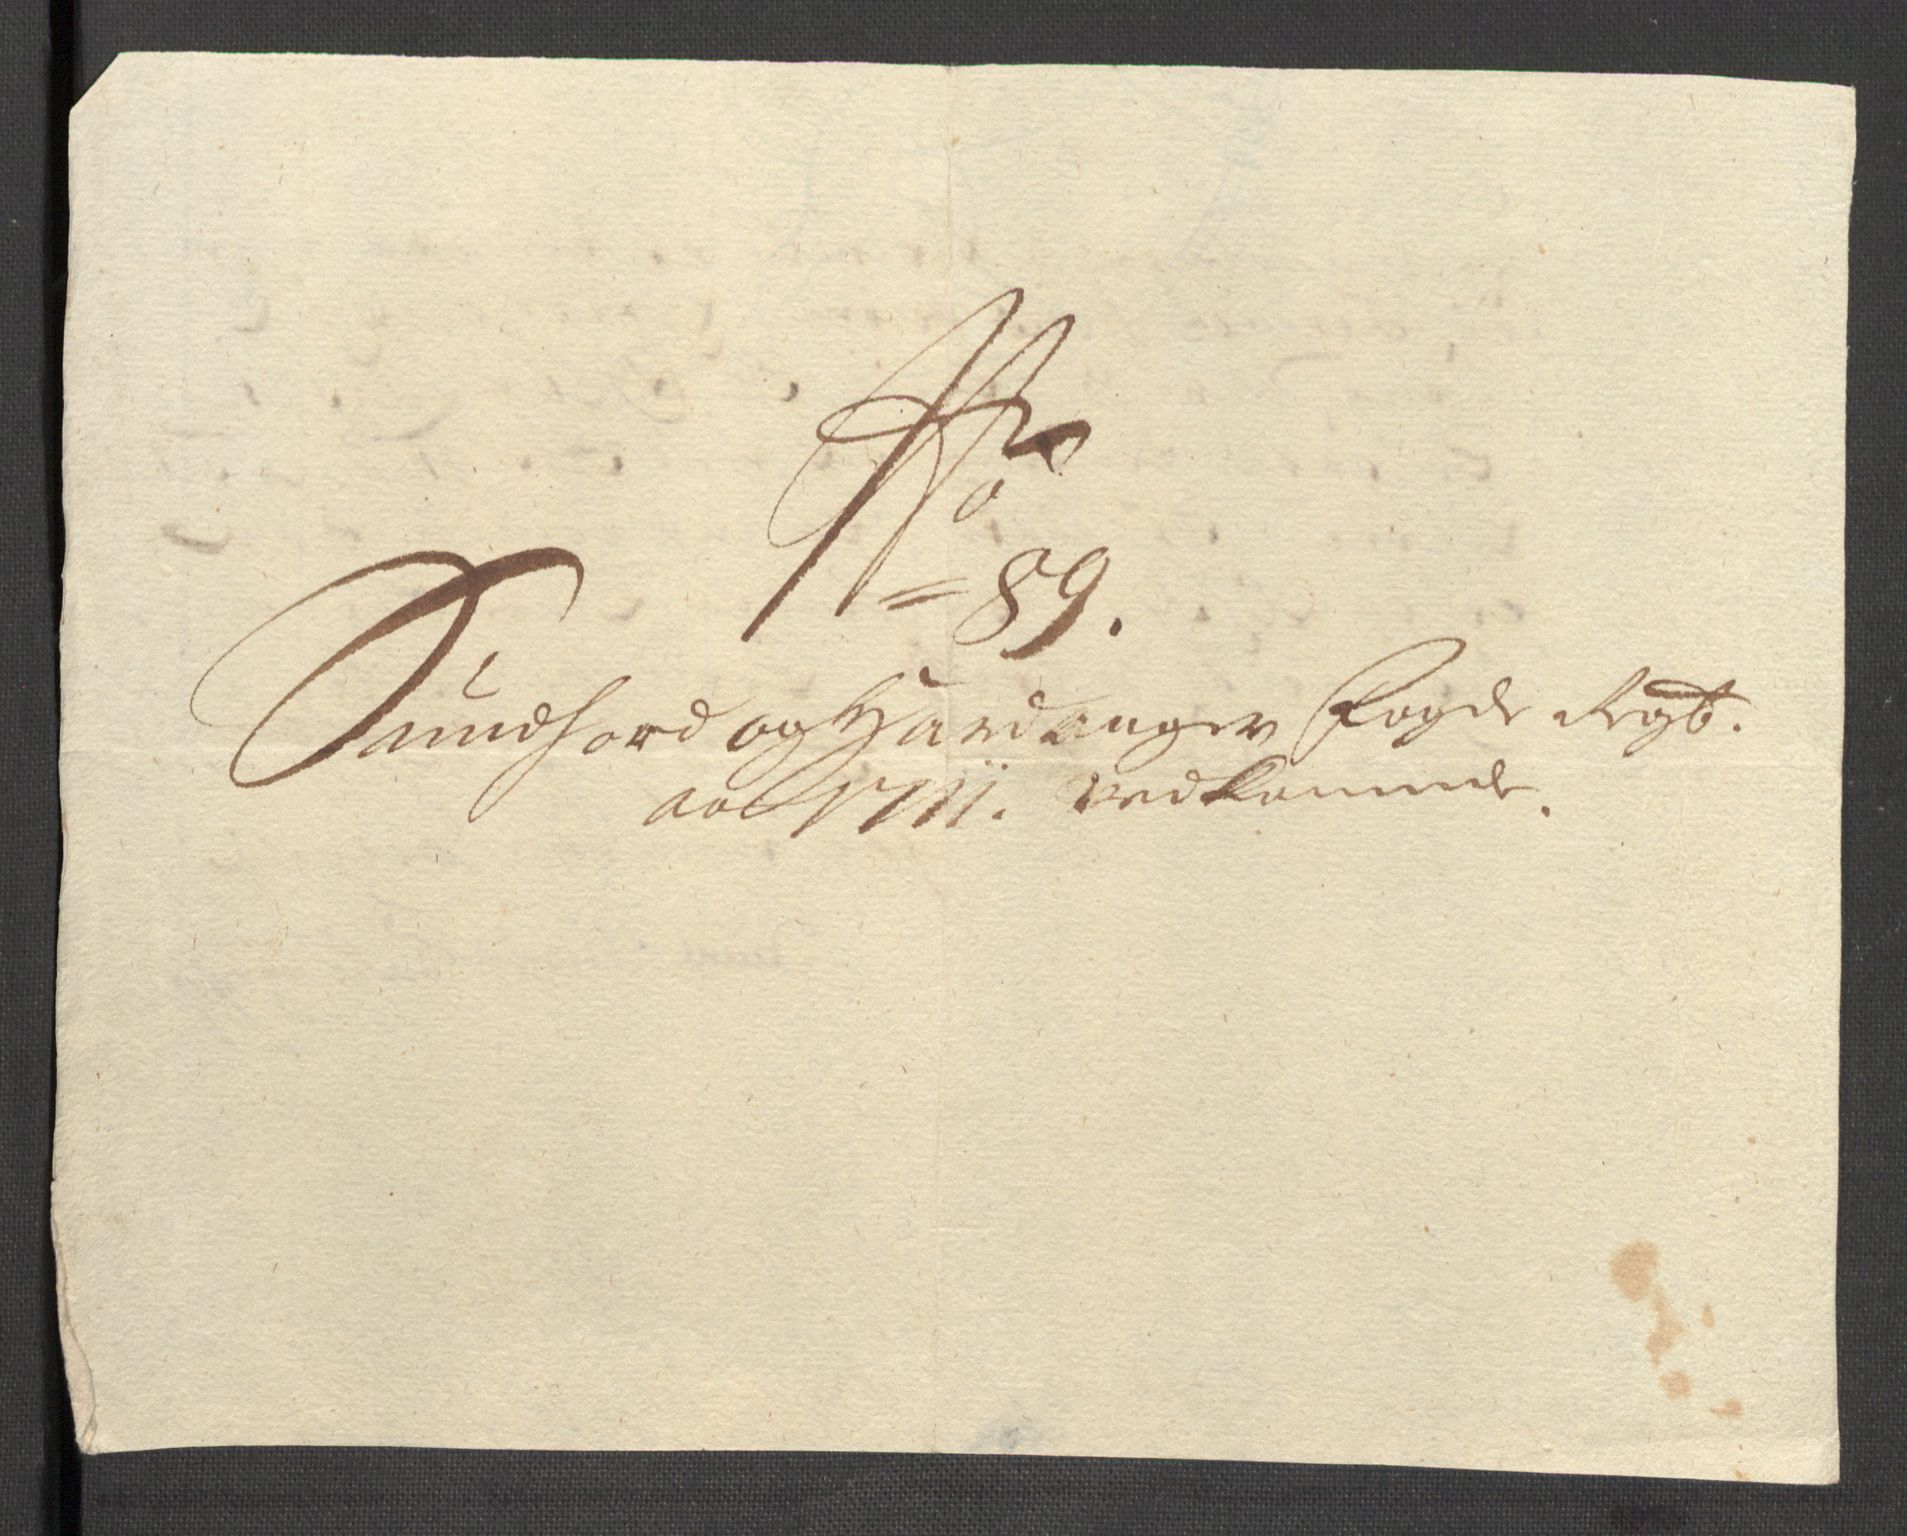 No
= 89.
Sundhord og Hardanger Fogde Regb.
ao 1711. vedkommde.